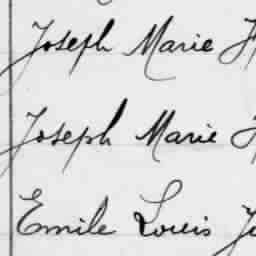 Joseph Marie
Joseph Marie
Emile Louis